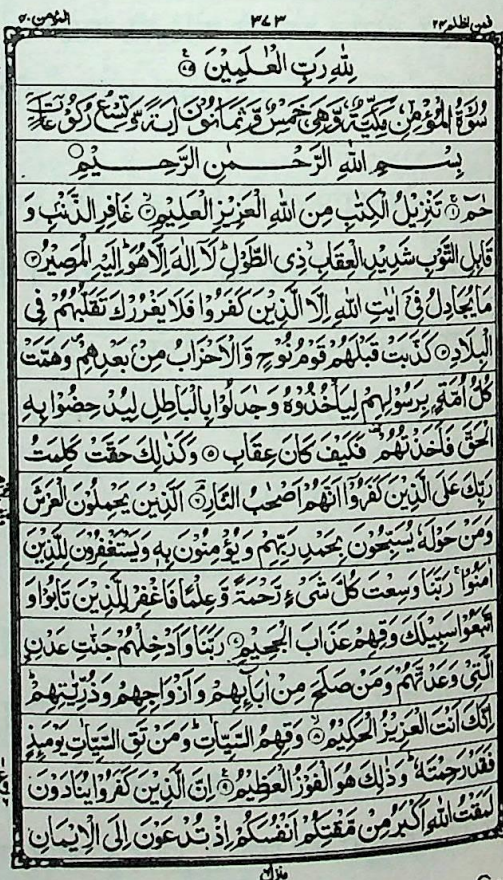 المؤمن ٤٠ ٣٧٣ فمن اظلم ٢٤
لِلّٰهِ رَبِّ الْعٰلَمِيْنَ ۝٧٥
سُوْرَةُ الْمُؤْمِنِ مَكِّيَّةٌ وَّهِيَ خَمْسٌ وَّثَمَانُوْنَ اٰيَةً وَّتِسْعُ رُكُوْعَاتٍ
بِسْمِ اللّٰهِ الرَّحْمٰنِ الرَّحِيْمِ ۝
حٰمٓ ۝١ تَنْزِيْلُ الْكِتٰبِ مِنَ اللّٰهِ الْعَزِيْزِ الْعَلِيْمِ ۝٢ غَافِرِ الذَّنْۢبِ وَ
قَابِلِ التَّوْبِ شَدِيْدِ الْعِقَابِ ذِي الطَّوْلِ ؕ لَاۤ اِلٰهَ اِلَّا هُوَ ؕ اِلَيْهِ الْمَصِيْرُ ۝٣
مَا يُجَادِلُ فِيْۤ اٰيٰتِ اللّٰهِ اِلَّا الَّذِيْنَ كَفَرُوْا فَلَا يَغْرُرْكَ تَقَلُّبُهُمْ فِي
الْبِلَادِ ۝٤ كَذَّبَتْ قَبْلَهُمْ قَوْمُ نُوْحٍ وَّالْاَحْزَابُ مِنْۢ بَعْدِهِمْ ۪ وَهَمَّتْ
كُلُّ اُمَّةٍۭ بِرَسُوْلِهِمْ لِيَاْخُذُوْهُ وَجٰدَلُوْا بِالْبَاطِلِ لِيُدْحِضُوْا بِهِ
الْحَقَّ فَاَخَذْتُهُمْ ۫ فَكَيْفَ كَانَ عِقَابِ ۝٥ وَكَذٰلِكَ حَقَّتْ كَلِمَتُ
رَبِّكَ عَلَى الَّذِيْنَ كَفَرُوْۤا اَنَّهُمْ اَصْحٰبُ النَّارِ ۝٦ اَلَّذِيْنَ يَحْمِلُوْنَ الْعَرْشَ
وَمَنْ حَوْلَهٗ يُسَبِّحُوْنَ بِحَمْدِ رَبِّهِمْ وَيُؤْمِنُوْنَ بِهٖ وَيَسْتَغْفِرُوْنَ لِلَّذِيْنَ
اٰمَنُوْا ۚ رَبَّنَا وَسِعْتَ كُلَّ شَيْءٍ رَّحْمَةً وَّعِلْمًا فَاغْفِرْ لِلَّذِيْنَ تَابُوْا وَ
اتَّبَعُوْا سَبِيْلَكَ وَقِهِمْ عَذَابَ الْجَحِيْمِ ۝٧ رَبَّنَا وَاَدْخِلْهُمْ جَنّٰتِ عَدْنِ
ۨالَّتِيْ وَعَدْتَّهُمْ وَمَنْ صَلَحَ مِنْ اٰبَآئِهِمْ وَاَزْوَاجِهِمْ وَذُرِّيّٰتِهِمْ ؕ
اِنَّكَ اَنْتَ الْعَزِيْزُ الْحَكِيْمُ ۝٨ وَقِهِمُ السَّيِّاٰتِ ؕ وَمَنْ تَقِ السَّيِّاٰتِ يَوْمَئِذٍ
فَقَدْ رَحِمْتَهٗ ؕ وَذٰلِكَ هُوَ الْفَوْزُ الْعَظِيْمُ ۝٩ اِنَّ الَّذِيْنَ كَفَرُوْا يُنَادَوْنَ
لَمَقْتُ اللّٰهِ اَكْبَرُ مِنْ مَّقْتِكُمْ اَنْفُسَكُمْ اِذْ تُدْعَوْنَ اِلَى الْاِيْمَانِ